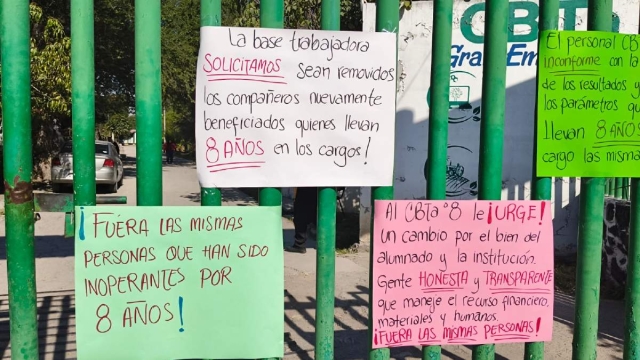 La base trabajadora
SOLICITAMOS sean removidos
los compañeros nuevamente
beneficiados quienes llevan
8 AÑOS en los cargos!
CBTa
Gra Em
El personal CB
inconforme con la
de los resultados y
los parámetros
llevan 8 AÑOS
cargo las misma
¡FUERA LAS MISMAS
PERSONAS QUE HAN SIDO
INOPERANTES POR
8 AÑOS!
Al CBTa °8 le ¡URGE!
un cambio por el bien del
alumnado y la institución.
Gente HONESTA y TRANSPARENTE
que maneje el recurso financiero,
materiales y humanos.
¡FUERA LAS MISMAS PERSONAS!